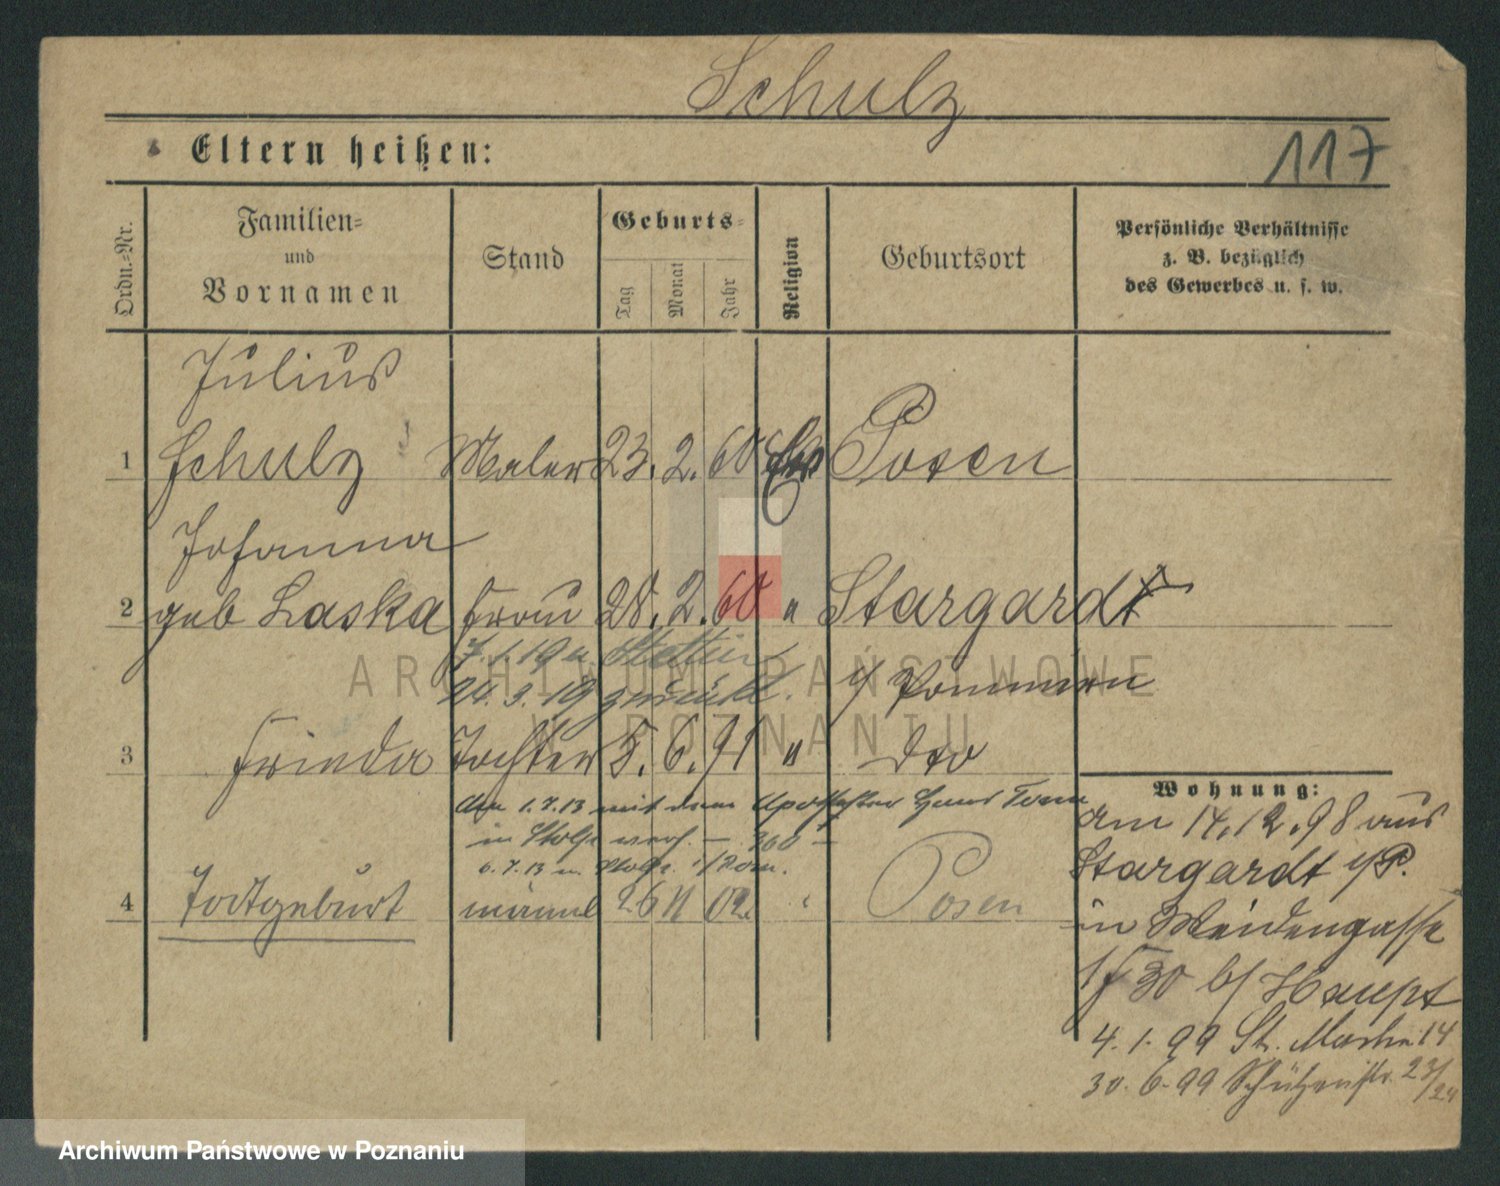 Schulz
Eltern heißen:
117
Ordn.-Nr.
Familien-
und
Vornamen
Stand
Geburts-
Tag
Monat
Jahr
Religion
Geburtsort
Persönliche Verhältnisse
z. B. bezüglich
des Gewerbes u. s. w.
Julius
1 Schulz Maler 23. 2. 60 Ev Posen
Johanna
2 geb Laska Frau 28. 2. 60 " Stargardt
7. 1. 19 n Stettin
24. 3. 19 zurück. i/ Pommern
3 Frieda Tochter 5. 6. 91 " dto
am 1.7.13 mit dem Apotheker
in Stolp verh. — 360 —
6. 7. 13 n. Stolp.
4 Todtgeburt männl 26 11 02 Posen
Wohnung:
am 14.12.98 aus
Stargardt i/P.
in Weidengasse
30 b/ Haupt
4. 1. 99 St. Martin 14
30. 6. 99 Schützenstr. 23/24
ARCHIWUM PAŃSTWOWE
W POZNANIU
Archiwum Państwowe w Poznaniu